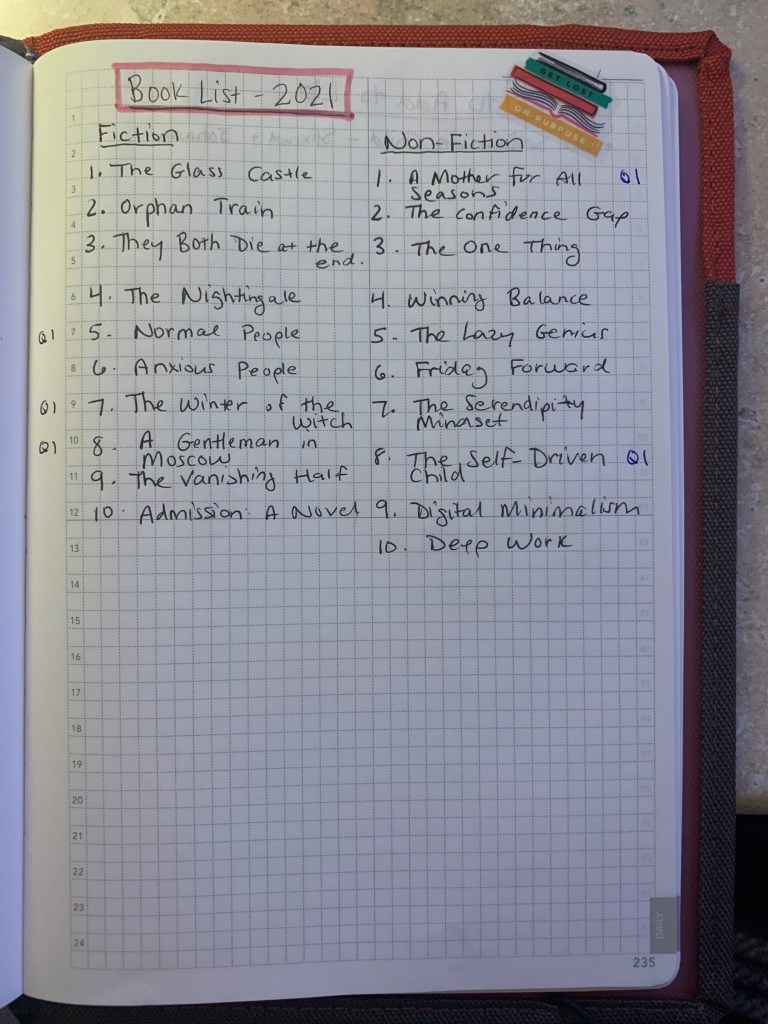 Book List - 2021
GET LOST
ON PURPOSE!!
Fiction
1. The Glass Castle
2. Orphan Train
3. They Both Die at the
end.
4. The Nightingale
Q1 5. Normal People
6. Anxious People
Q1 7. The Winter of the
Witch
Q1 8. A Gentleman in
Moscow
9. The Vanishing Half
10. Admission: A Novel
Non-Fiction
1. A Mother for All Q1
Seasons
2. The Confidence Gap
3. The One Thing
4. Winning Balance
5. The Lazy Genius
6. Friday Forward
7. The Serendipity
Mindset
8. The Self-Driven Q1
Child
9. Digital Minimalism
10. Deep Work
1
2
3
4
5
6
7
8
9
10
11
12
13
14
15
16
17
18
19
20
21
22
23
24
DAILY
235